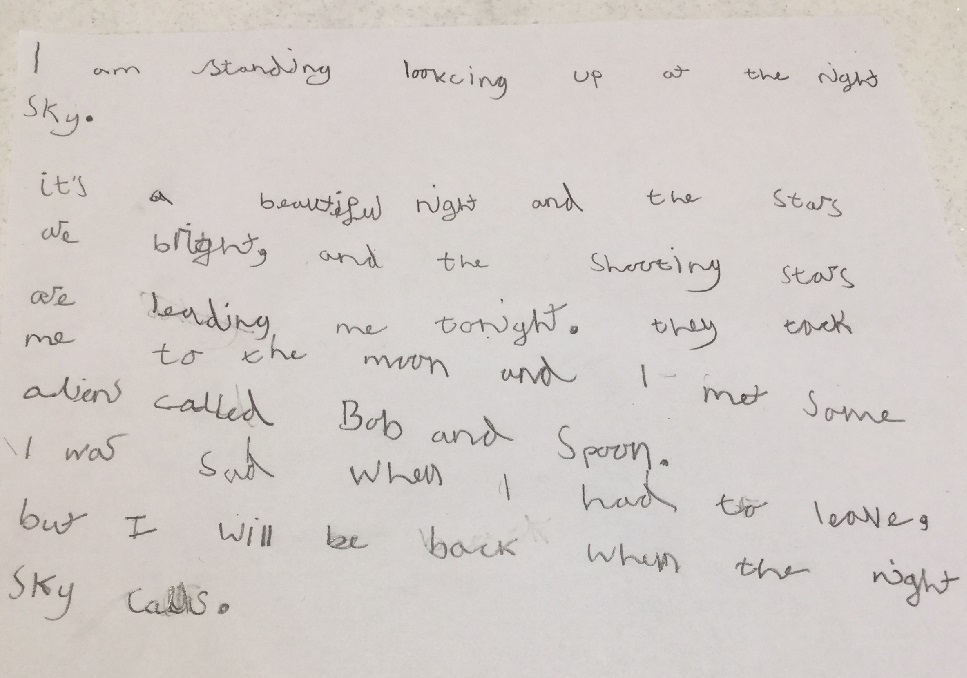 I am standing lookcing up at the night
Sky.
it's a beautiful night and the stars
are bright, and the shooting stars
are leading me tonight. they tack
me to the moon and I met some
aliens called Bob and Spoon.
I was sad when I had to leave,
but I will be back when the night
Sky calls.